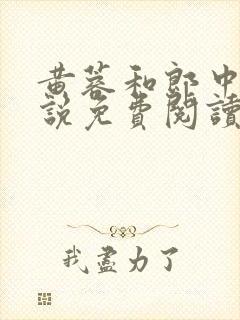 黄蓉和郎中
說免費閱讀
我盡力了